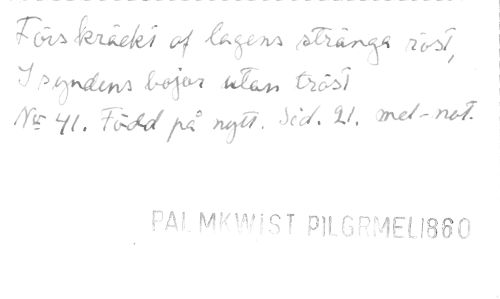 Förskräckt af lagens stränga röst,
I syndens bojor utan tröst
No 41. Född på nytt. Sid. 21. mel-not.
PALMKWIST PILGRMEL1860